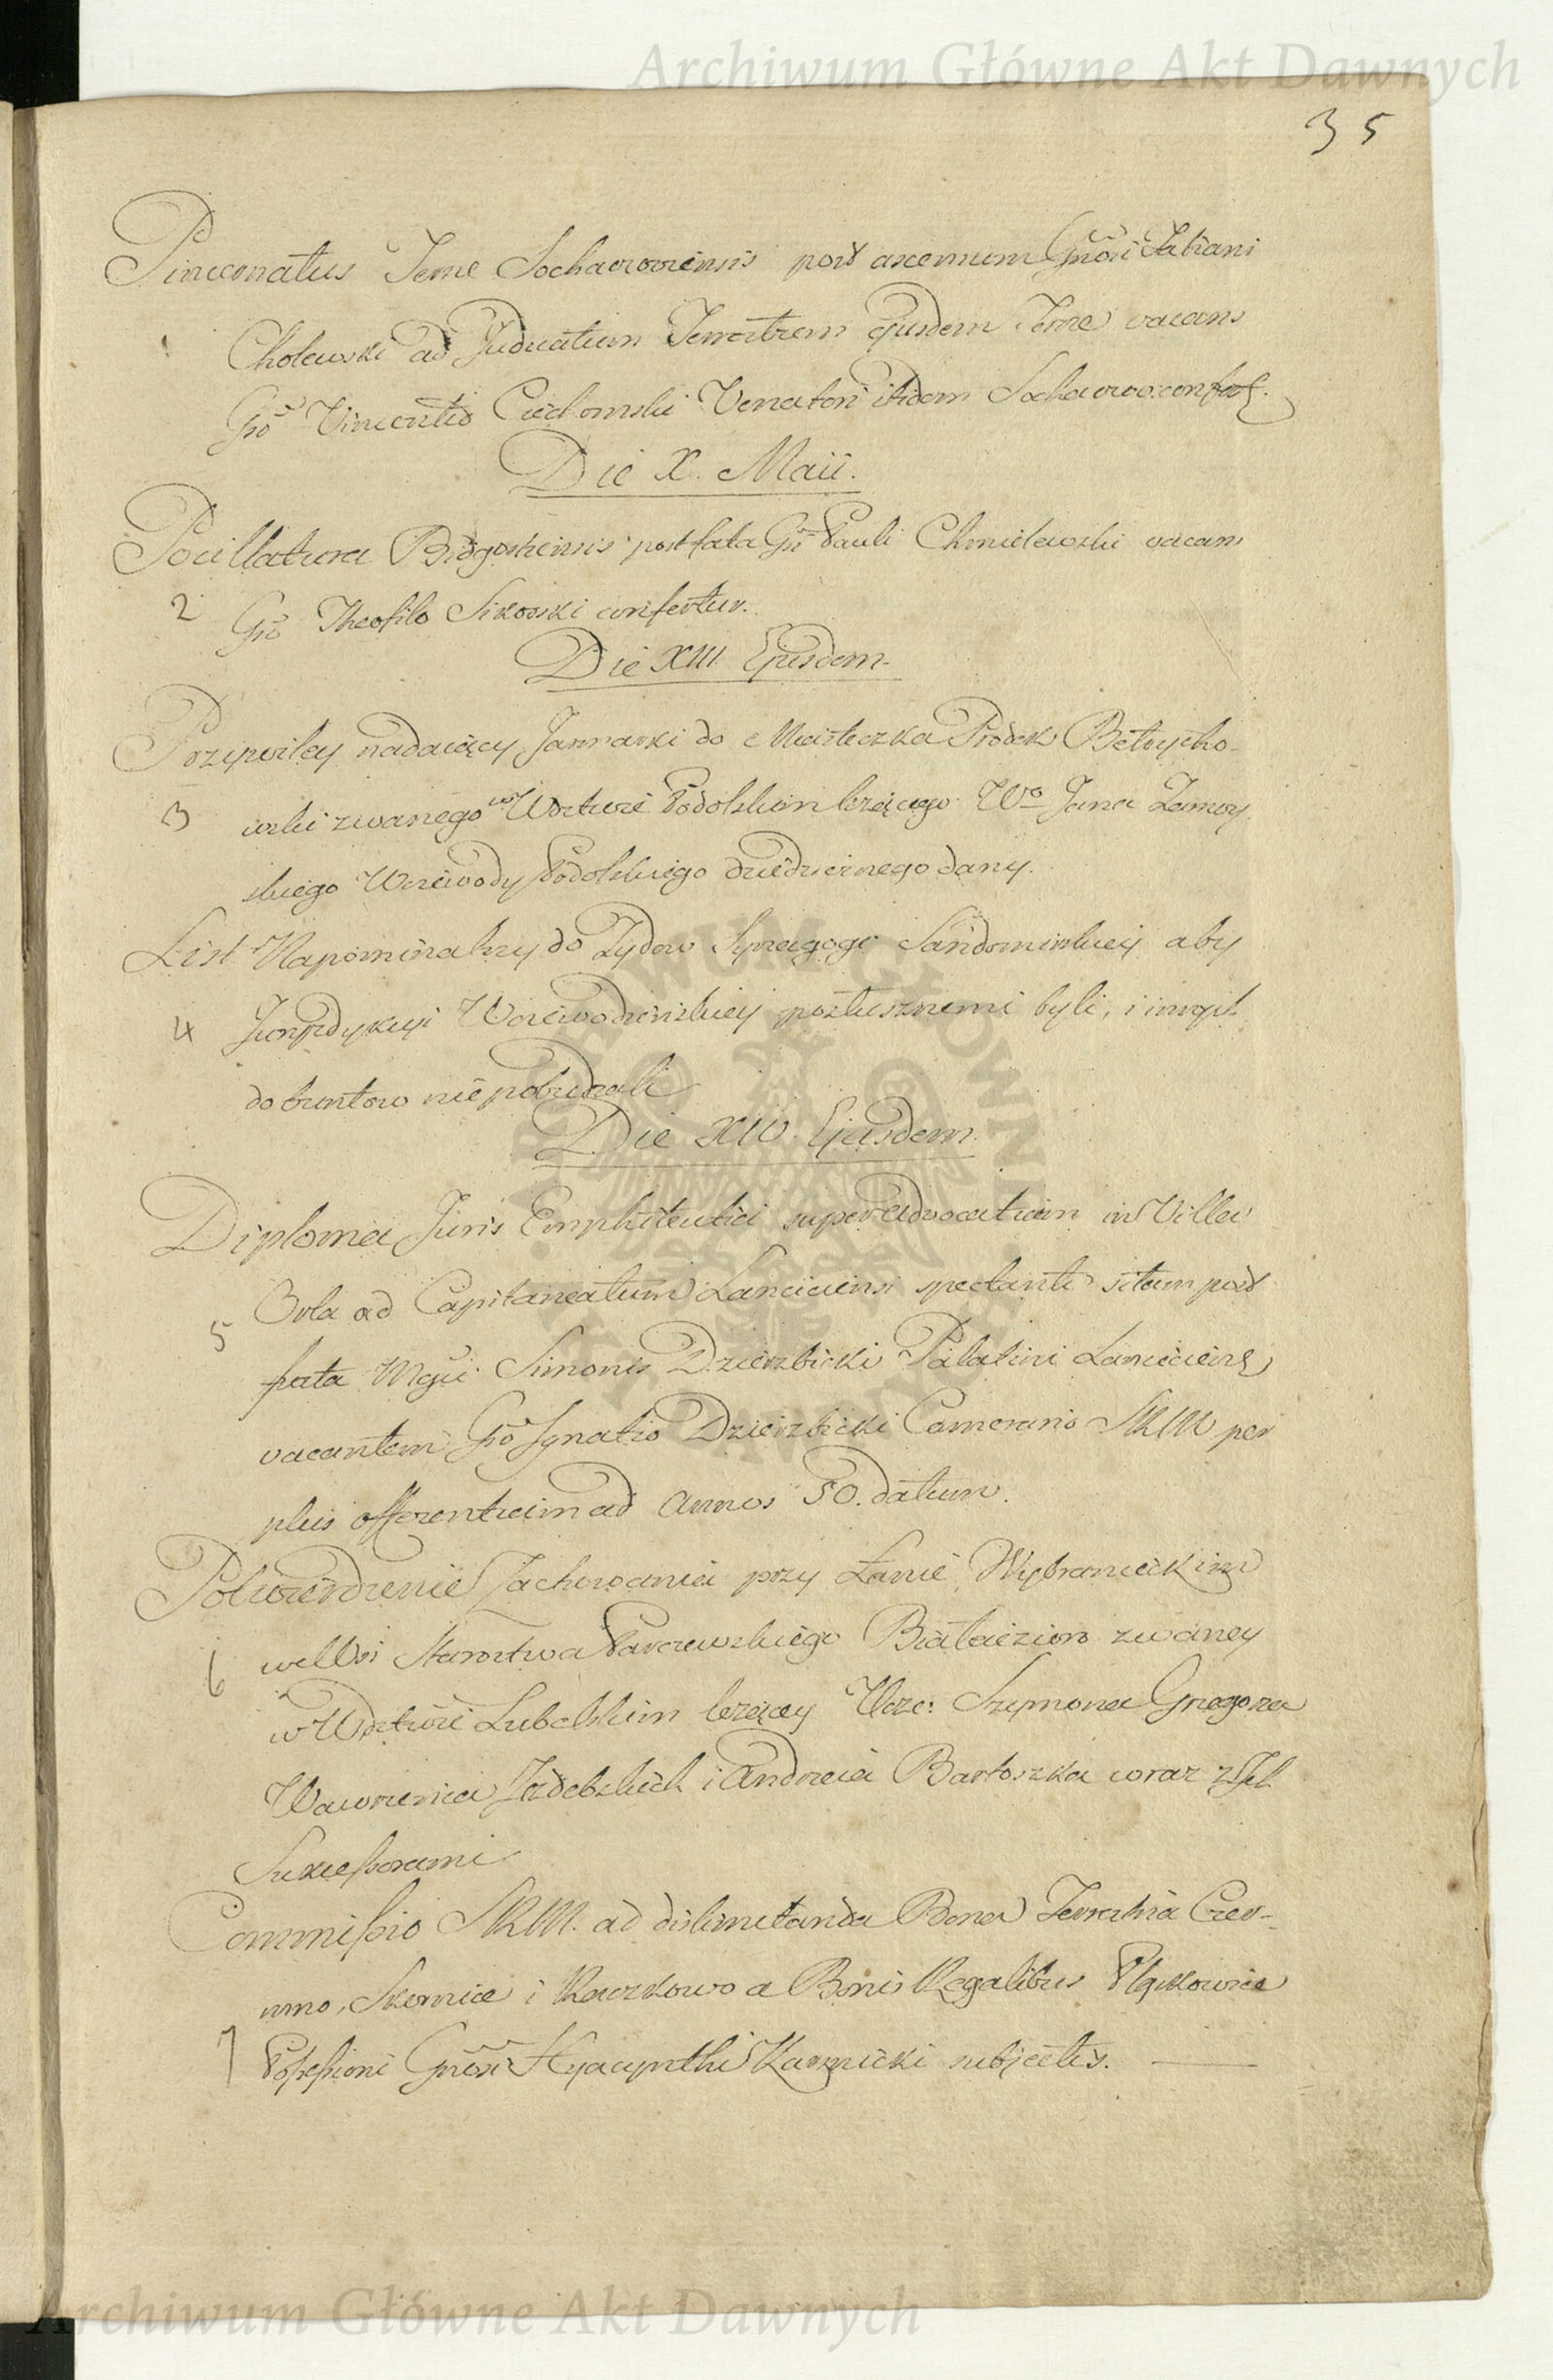 Archiwum Główne Akt Dawnych
35
Pincernatus Terrae Sochaczoviensis post ascensum Gnōsi Fabiani
1 Cholewski ad Judicatum Terrestrem ejusdem Terrae vacans
Gsō Vincentio Ciechomski Venatori itidem Sochaczov: confert.
Die X. Maii.
Pocillatura Bidgostiensis post fata Gsi Pauli Chmielewski vacans
2 Gsō Theofilo Sikorski confertur.
Die XIII Ejusdem.
Przywiley nadaiący Jarmarki do Miasteczka Prodek Betrycho-
3 wski zwanego w Wdztwie Podolskim leżącego Wo Jana Zamoy
skiego Woiewody Podolskiego dziedzicznego dany.
List Napominalny do Zydow Synagogi Sandomirskiey aby
4 Juryzdykcyi Woiewodzinskiey posłusznemi byli, i innych
do buntow nie pobudzali
Die XIV. Ejusdem
Diploma Juris Emphiteutici super advocatiam in Villa
5 Orla ad Capitaneatum Lanciciensi spectanti sitam post
fata Mgci Simonis Dzierzbicki Palatini Lanciciens
vacantem Gsō Ignatio Dzierzbicki Camerario SRM per
plus offerentiam ad annos 50. datum.
Potwierdzenie Zachowania przy Łanie Wybranieckim
6 we Wsi Starostwa Parczewskiego Białaizion zwaney
w Wdztwie Lubelskim leżącey Ucze: Szymona Grzegorza
Wawrzenca Jezdebskich i Andrzeia Bartoszka wraz z Ich
Sukcessorami
Commissio SRM. ad dislimitanda Bona Terrestria Czer-
nno, Skornice i Raczkowo a Bonis Regalibus Pląskowice
7 Possessioni Gnōsi Hyacynthi Karnicki subjectis.
ARCHIWUM GŁÓWNE AKT DAWNYCH
Archiwum Główne Akt Dawnych